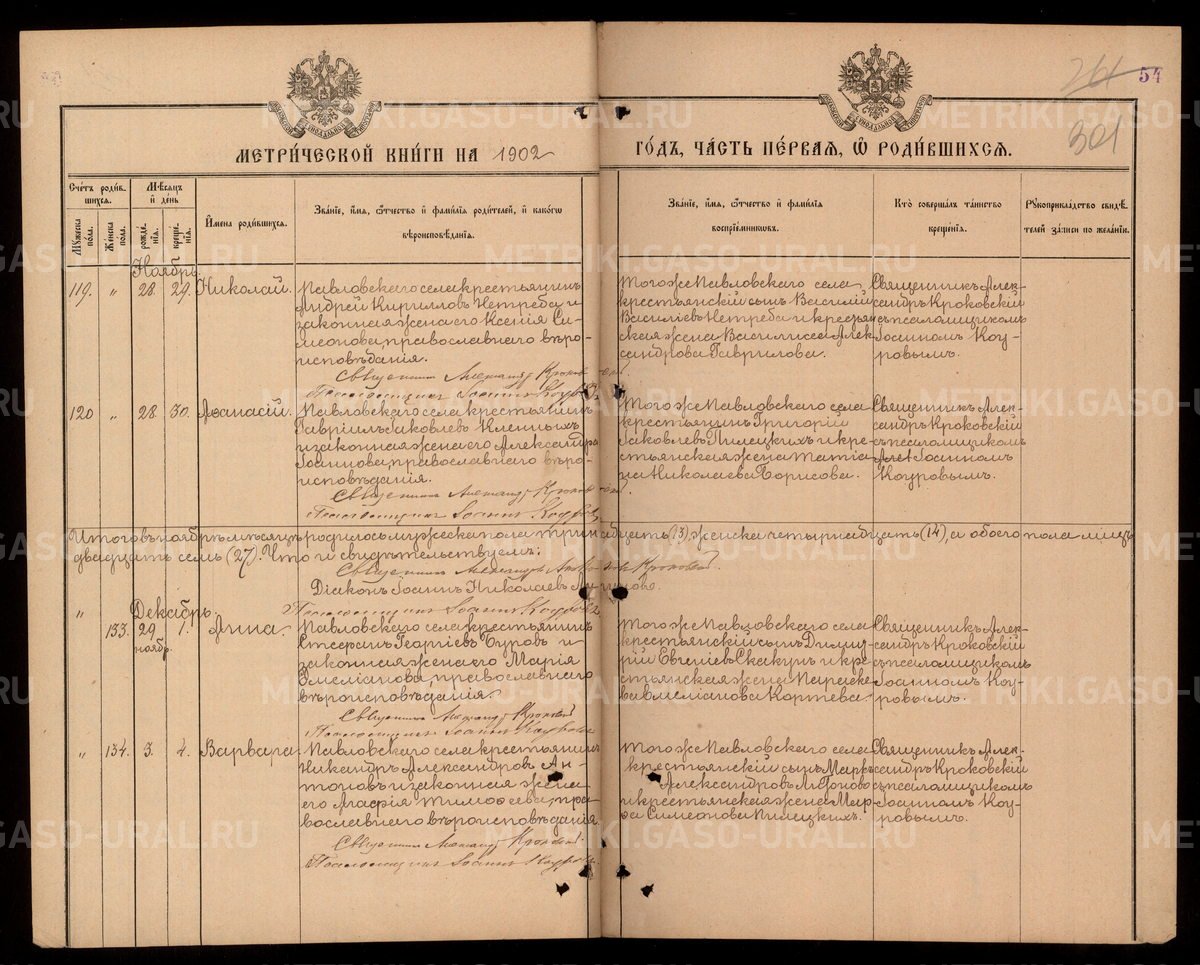 261
54
301
МЕТРИ́ЧЕСКОЙ КНИ́ГИ НА 1902
ГО́ДЪ, ЧА́СТЬ ПЕ́РВАЯ, Ѿ РОДИ́ВШИХСЯ.
Сче́тъ роди́вшихся.
Му́жеска по́ла.
Же́нска по́ла.
Мѣ́сяцъ и де́нь
рожде́нія.
креще́нія.
И҆мена роди́вшихся.
Зва́ніе, и҆́мя, ѻ҆́тчество и҆ фами́лія роди́телей, и҆ како́гѡ
вѣроисповѣ́данія.
Зва́ніе, и҆́мя, ѻ҆́тчество и҆ фами́лія
воспріе́мниковъ.
Кто̀ соверша́лъ та́инство
креще́нія.
Рꙋкоприкла́дство свидѣ́телей за́писи по жела́нію.
Ноябрь.
119. " 28. 29. Николай.
Павловскаго села крестьянинъ
Андрей Кирилловъ Нетреба и
законная жена его Ксенія Си-
меонова, православнаго вѣро-
исповѣданія.
Священникъ Александръ Кроковскій
Псаломщикъ Іоаннъ Коуровъ
Тогоже Павловскаго села
крестьянскій сынъ Василій
Василіевъ Нетреба и крестьян
ская жена Василисса Алек-
сандрова Гаврилова.
Священникъ Алек-
сандръ Кроковскій
съ псаломщикомъ
Іоанномъ Коу-
ровымъ.
120 " 28. 30. Аѳанасій.
Павловскаго села крестьянинъ
Гавріилъ Іаковлевъ Клепныхъ
и законная жена его Александра
Іоаннова, православнаго вѣро-
исповѣданія.
Священникъ Александръ Кроковскій
Псаломщикъ Іоаннъ Коуровъ
Тогоже Павловскаго села
крестьянинъ Григорій
Іаковлевъ Пилецкихъ и кре-
стьянская жена Татіа-
на Николаева Борисова.
Священникъ Алек-
сандръ Кроковскій
съ псаломщикомъ
Іоанномъ
Коуровымъ.
Итого въ ноябрѣ мѣсяцѣ родилось мужеска пола тринадцать (13), женска четырнадцать (14), а обоего пола лицъ
двадцать семь (27). Что и свидѣтельствуемъ:
Священникъ Александръ Кроковскій.
Діаконъ Іоаннъ Николаевъ
Псаломщикъ Іоаннъ Коуровъ
Декабрь.
" 133. 29 ноябр. 1. Анна.
Павловскаго села крестьянинъ
Стефанъ Георгіевъ Буровъ и
законная жена его Марія
Эмеліанова, православнаго
вѣроисповѣданія.
Священникъ Александръ Кроковскій
Псаломщикъ Іоаннъ Коуровъ
Тогоже Павловскаго села
крестьянскій сынъ Димит-
рій Евгеніевъ Скакунъ и кре-
стьянская жена Параске-
ва Емеліанова Картева.
Священникъ Алек-
сандръ Кроковскій
съ псаломщикомъ
Іоанномъ Коу-
ровымъ.
" 134. 3. 4. Варвара.
Павловскаго села крестьянинъ
Никандръ Александровъ Ан-
тоновъ и законная жена
его Агафія Тимоѳеева, пра-
вославнаго вѣроисповѣданія
Священникъ Александръ Кроковскій
Псаломщикъ Іоаннъ Коуровъ
Тогоже Павловскаго села
крестьянскій сынъ Маркъ
Александровъ Антоновъ
и крестьянская жена Мар-
ѳа Симеонова Пилецкихъ.
Священникъ Алек-
сандръ Кроковскій
съ псаломщикомъ
Іоанномъ Коу-
ровымъ.
METRIKI.GASO-URAL.RU